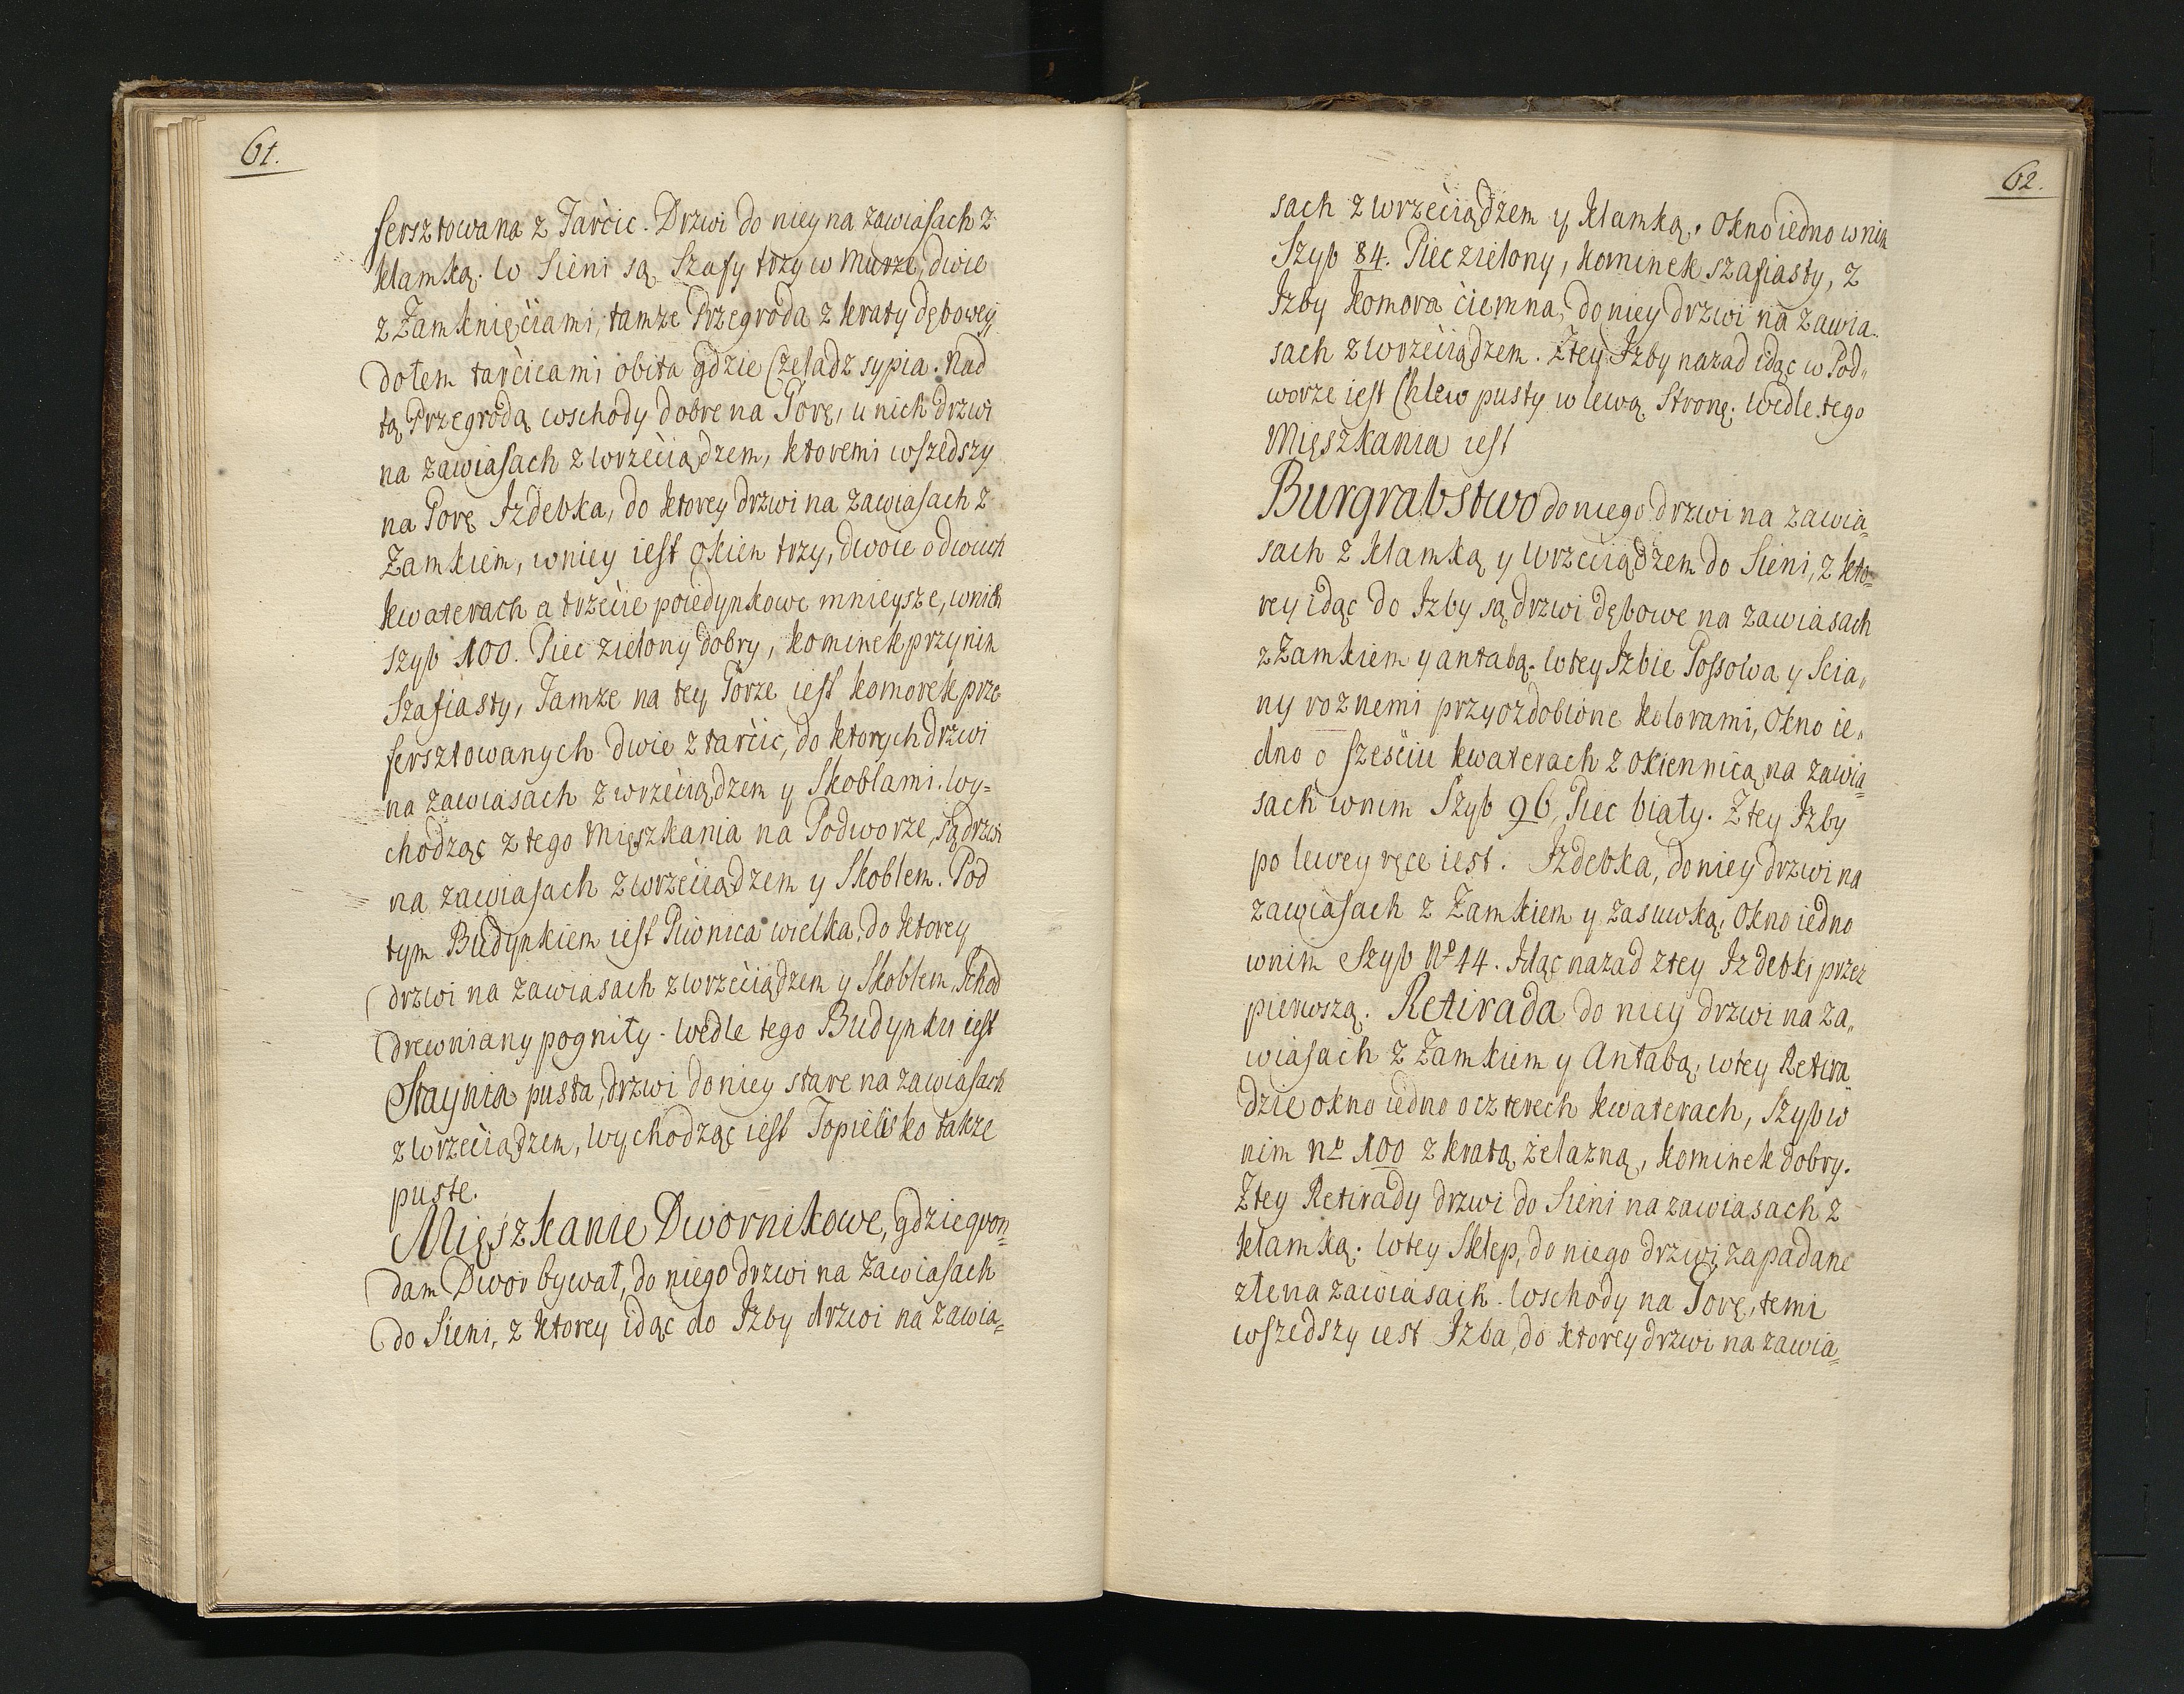 61.
fersztowana z Tarcic. Drzwi do niey na zawiasach z
klamką. W Sieni są Szafy trzy w Murze, dwie
z Zamknięciami, tamze Przegroda z kraty dębowey
dołem tarcicami obita gdzie Czeladz sypia. Nad
tą Przegrodą wschody dobre na Gorę, u nich drzwi
na zawiasach z wrzeciądzem, ktoremi wszedszy
na Gorę Izdebka, do ktorey drzwi na zawiasach z
Zamkiem, w niey iest okien trzy, dwoie o dwuch
kwaterach a trzecie poiedynkowe mnieysze, w nich
szyb 100. Piec zielony dobry, kominek przy nim
Szafiasty, Tamze na tey Gorze iest komorek prze
fersztowanych dwie z tarcic, do ktorych drzwi
na zawiasach z wrzeciądzem y Skoblami. Wy=
chodząc z tego Mięszkania na Podworze, są drzwi
na zawiasach z wrzeciądzem y Skoblem. Pod
tym Budynkiem iest Piwnica wielka, do ktorey
drzwi na zawiasach z wrzeciądzem y Skoblem, Schod
drewniany pogniły. Wedle tego Budynku iest
Staynia pusta, drzwi do niey stare na zawiasach
z wrzeciądzem, wychodząc iest Topielisko takze
puste.
Mięszkanie Dwornikowe, gdzie qvon=
dam Dwor bywał, do niego drzwi na Zawiasach
do Sieni, z ktorey idąc do Izby drzwi na zawia=
62.
sach z wrzeciądzem y klamką. Okno iedno w nim
Szyb 84. Piec zielony, kominek szafiasty, z
Izby komora ciemna, do niey drzwi na zawia=
sach z wrzeciądzem. Z tey Izby nazad idąc w Pod=
worze iest Chlew pusty w lewą Stronę. Wedle tego
Mięszkania iest
Burgrabstwo do niego drzwi na zawia=
sach z klamką y wrzeciądzem do Sieni, z kto=
rey idąc do Izby są drzwi dębowe na zawiasach
z Zamkiem y antabą. W tey Izbie Possowa y Scia=
ny roznemi przyozdobione kolorami, Okno ie=
dno o szesciu kwaterach z okiennicą na zawia=
sach w nim Szyb 96, Piec biały. Z tey Izby
po lewey ręce iest. Izdebka, do niey drzwi na
zawiasach z Zamkiem y zasuwką, Okno iedno
w nim Szyb No 44. Idąc nazad z tey Izdebki przez
pierwszą. Retirada do niey drzwi na za=
wiasach z Zamkiem y Antabą, w tey Retira=
dzie okno iedno o czterech kwaterach, Szyb w
nim No 100 z kratą żelazną, kominek dobry.
Z tey Retirady drzwi do Sieni na zawiasach z
klamką. W tey Sklep, do niego drzwi zapadane
złe na zawiasaik. Wschody na Gorę, temi
wszedszy iest Izba, do ktorey drzwi na zawia=